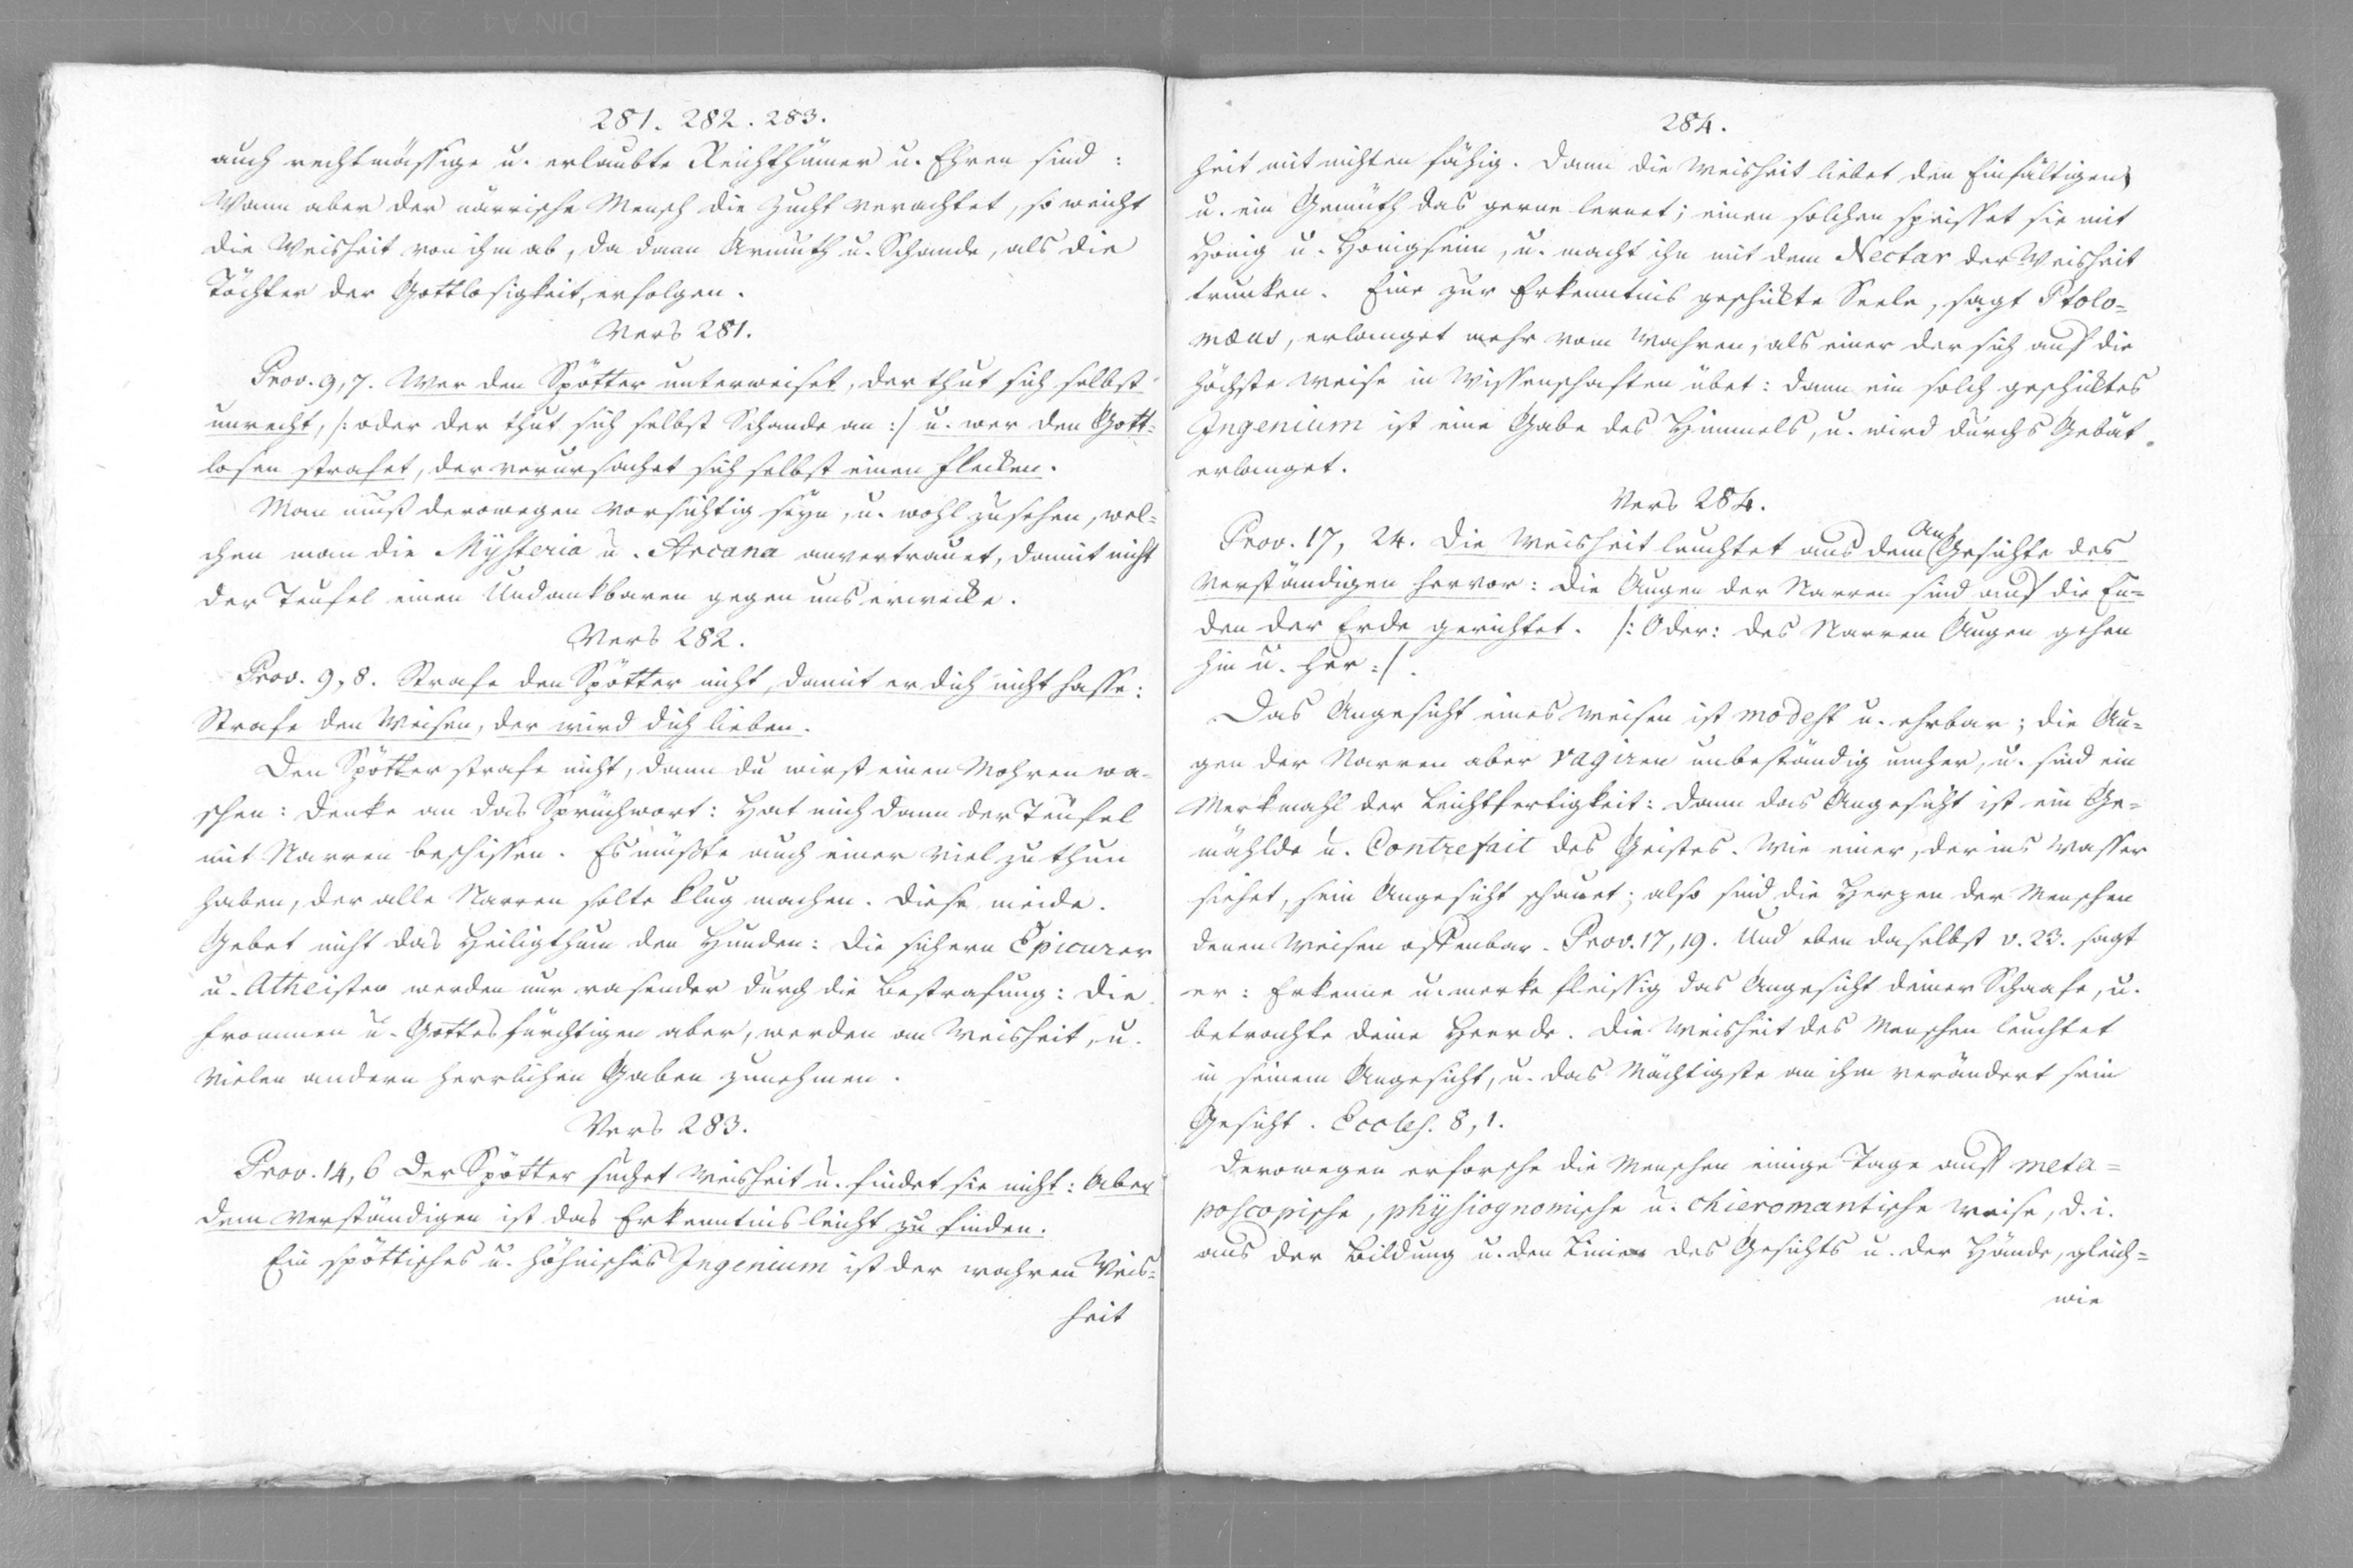 281. 282. 283.
auch rechtmässige u. erlaubte Reichthümer u. Ehren sind:
Wann aber der närrische Mensch die Zucht verachtet, so weicht
die Weisheit von ihm ab, da dann Armuth u. Schande, als die
Töchter der Gottlosigkeit, erfolgen.
Vers 281.
Prov. 9, 7. Wer den Spötter unterweiset, der thut sich selbst
unrecht, /: oder der thut sich selbst Schande an :/ u. wer den Gott=
losen strafet, der verursachet sich selbst einen Flecken.
Man muß derowegen vorsichtig seyn, u. wohl zusehen, wel=
chen man die Mysteria u. Arcana anvertrauet, damit nicht
der Teufel einen Undankbaren gegen uns erwecke.
Vers 282.
Prov. 9, 8. Strafe den Spötter nicht, damit er dich nicht hasse:
Strafe den Weisen, der wird dich lieben.
Den Spötter strafe nicht, dann du wirst einen Mohren wa=
schen: denke an das Sprüchwort: Hat mich dann der Teufel
mit Narren beschissen. Es müßte auch einer viel zu thun
haben, der alle Narren solte klug machen. Diese meide.
Gebet nicht das Heiligthum den Hunden: die sichern Epicurer
u. Atheisten werden nur rasender durch die Bestrafung: die
frommen u. Gottesfürchtigen aber, werden an Weisheit, u.
vielen andern herrlichen Gaben zunehmen.
Vers 283.
Prov. 14, 6 Der Spötter suchet Weisheit u. findet sie nicht: Aber
dem Verständigen ist das Erkenntnis leicht zu finden.
Ein spöttisches u. höhnisches Ingenium ist der wahren Weis=
heit
284.
heit mit nichten fähig. Dann die Weisheit liebet den Einfältigen
u. ein Gemüth das gerne lernet; einen solchen speisset sie mit
Hönig u. Hönigseim, u. macht ihn mit dem Nectar der Weisheit
trunken. Eine zur Erkenntnis geschickte Seele, sagt Ptolo=
mæus, erlanget mehr vom Wahren, als einer der sich auf die
höchste Weise in Wissenschaften übet: dann ein solch geschicktes
Ingenium ist eine Gabe des Himmels, u. wird durchs Gebät
erlanget.
Vers 284.
An
Prov. 17, 24. Die Weisheit leuchtet aus dem Gesichte des
Verständigen hervor: die Augen der Narren sind auf die En=
den der Erde gerichtet. /: Oder: des Narren Augen gehen
hin u. her :/.
Das Angesicht eines Weisen ist modest u. ehrbar; die Au=
gen der Narren aber vagiren unbeständig umher, u. sind ein
Merkmahl der Leichtfertigkeit: dann das Angesicht ist ein Ge=
mählde u. Contrefait des Geistes. Wie einer, der ins Wasser
siehet, sein Angesicht schauet; also sind die Herzen der Menschen
denen Weisen offenbar. Prov. 17, 19. Und eben daselbst v. 23. sagt
er: Erkenne u. merke fleissig das Angesicht deiner Schaafe, u.
betrachte deine Heerde. Die Weisheit des Menschen leuchtet
in seinem Angesicht, u. das Mächtigste an ihm verändert sein
Gesicht. Eccles. 8, 1.
Derowegen erforsche die Menschen einige Tage auf meta=
poscopische, physiognomische u. chieromantische Weise, d. i.
aus der Bildung u. den Linien des Gesichts u. der Hände, gleich=
wie